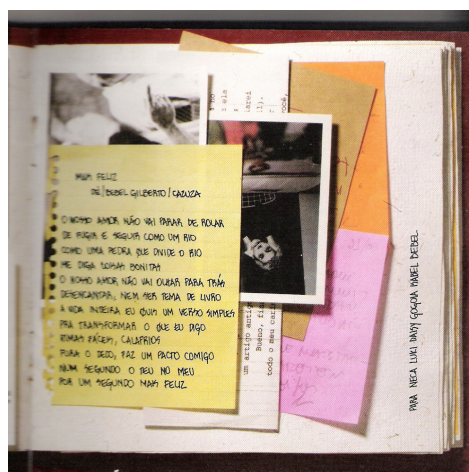 MAIS FELIZ
DÉ/BEBEL GILBERTO/CAZUZA
O NOSSO AMOR NÃO VAI PARAR DE ROLAR
DE FUGIR E SEGUIR COMO UM RIO
COMO UMA PEDRA QUE DIVIDE O RIO
ME DIGA COISAS BONITAS
O NOSSO AMOR NÃO VAI OLHAR PARA TRÁS
DESENCANTAR, NEM SER TEMA DE LIVRO
A VIDA INTEIRA EU QUIS UM VERSO SIMPLES
PRA TRANSFORMAR O QUE EU DIGO
RIMAS FÁCEIS, CALAFRIOS
FURA O DEDO, FAZ UM PACTO COMIGO
NUM SEGUNDO O SEU NO MEU
POR UM SEGUNDO MAIS FELIZ
um artigo antigo
Bueno,
todo o meu cari
PARA NECA LUKI DAISY GOGOIA MABEL DEBEL